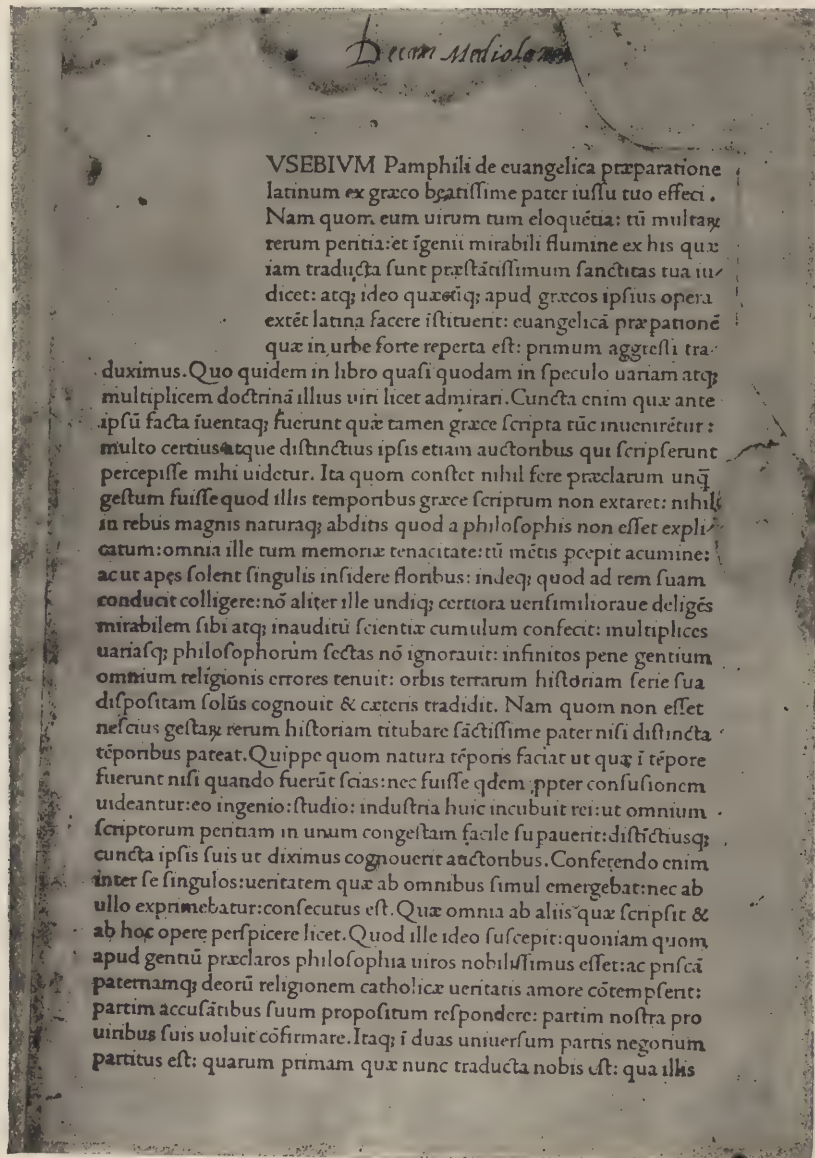 Decan Mediolanen
VSEBIVM Pamphili de euangelica præparatione
latinum ex græco beatissime pater iussu tuo effeci.
Nam quom eum uirum tum eloquētia: tū multaꝝ
rerum peritia: et īgenii mirabili flumine ex his quæ
iam traducta sunt præstātissimum sanctitas tua iu/
dicet: atq; ideo quæcūq; apud græcos ipsius opera
extēt latina facere īstituerit: euangelicā præpationē
quæ in urbe forte reperta est: primum aggressi tra
duximus. Quo quidem in libro quasi quodam in speculo uariam atq;
multiplicem doctrinā illius uiri licet admirari. Cuncta enim quæ ante
ipsū facta īuentaq; fuerunt quæ tamen græce scripta tūc inuenirētur:
multo certius atque distinctius ipsis etiam auctoribus qui scripserunt
percepisse mihi uidetur. Ita quom constet nihil fere præclarum unq̄
gestum fuisse quod illis temporibus græce scriptum non extaret: nihil
in rebus magnis naturaq; abditis quod a philosophis non esset expli/
catum: omnia ille tum memoriæ tenacitate: tū mētis ꝑcepit acumine:
ac ut apes solent singulis insidere floribus: indeq; quod ad rem suam
conducit colligere: nō aliter ille undiq; certiora uerisimilioraue deligēs
mirabilem sibi atq; inauditū scientiæ cumulum confecit: multiplices
uariasq; philosophorum sectas nō ignorauit: infinitos pene gentium
omnium religionis errores tenuit: orbis terrarum historiam serie sua
dispositam solus cognouit & cæteris tradidit. Nam quom non esset
nescius gestaꝝ rerum historiam titubare sāctissime pater nisi distincta
tēporibus pateat. Quippe quom natura tēporis faciat ut quæ ī tēpore
fuerunt nisi quando fuerūt scias: nec fuisse qdem ꝓpter confusionem
uideantur: eo ingenio: studio: industria huic incubuit rei: ut omnium
scriptorum peritiam in unum congestam facile supauerit: distīctiusq;
cuncta ipsis suis ut diximus cognouerit auctoribus. Conferendo enim
inter se singulos: ueritatem quæ ab omnibus simul emergebat: nec ab
ullo exprimebatur: consecutus est. Quæ omnia ab aliis quæ scripsit &
ab hoc opere perspicere licet. Quod ille ideo suscepit: quoniam quom
apud gentiū præclaros philosophia uiros nobilissimus esset: ac priscā
paternamq; deorū religionem catholicæ ueritatis amore cōtempserit:
partim accusātibus suum propositum respondere: partim nostra pro
uiribus suis uoluit cōfirmare. Itaq; ī duas uniuersum partis negotium
partitus est: quarum primam quæ nunc traducta nobis est: qua illis